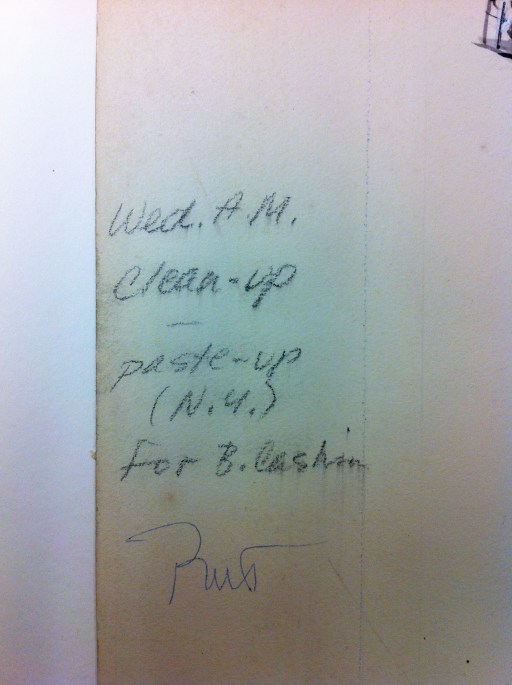 Wed. A.M.
Clean-up
—
paste-up
(N.Y.)
For B. Cashin